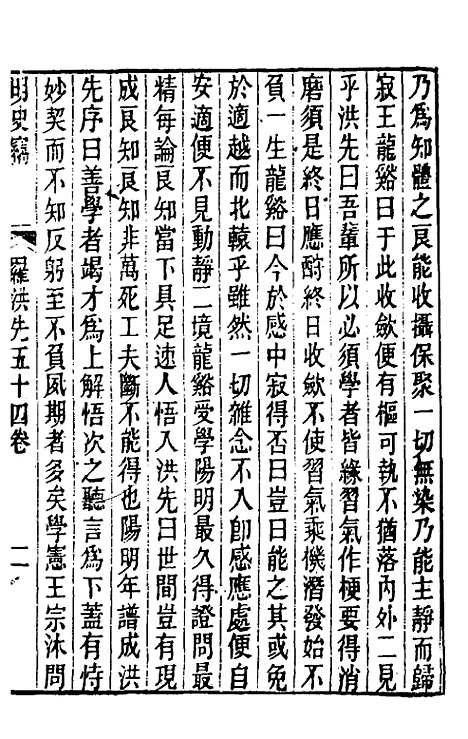 乃為知體之良能收攝保聚一切無染乃能主靜而歸
寂王龍谿曰于此收斂便有樞可執不猶落內外二見
乎洪先曰吾輩所以必須學者皆緣習氣作梗要得消
磨須是終日應酧終日收斂不使習氣乘機潛發始不
負一生龍谿曰今於感中寂得否曰豈曰能之其或免
於適越而北轅乎雖然一切雜念不入卽感應處便自
安適便不見動靜二境龍谿受學陽明最久得證問最
精每論良知當下具足速人悟入洪先曰世間豈有現
成良知良知非萬死工夫斷不能得也陽明年譜成洪
先序曰善學者竭才為上解悟次之聽言為下蓋有恃
妙契而不知反躬至不負夙期者多矣學憲王宗沐問
明史竊 羅洪先五十四卷 二